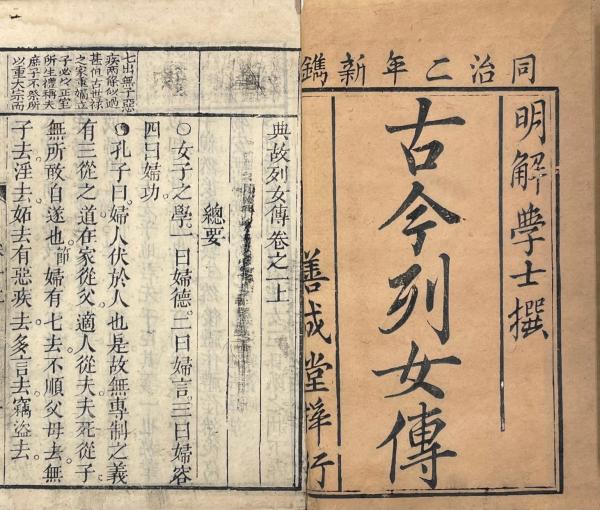 同治二年新鐫
明解學士撰
古今列女傳
善成堂梓行
七出無子惡
疾兩條似過
甚但古世祿
之家重嫡立
子必以正室
所生禮稱夫
庶子不祭所
以重大宗而
典故列女傳卷之一上
總要
〇女子之學一曰婦德二曰婦言三曰婦容
四曰婦功
孔子曰婦人伏於人也是故無專制之義
有三從之道在家從父適人從夫夫死從子
無所敢自遂也節婦有七去不順父母去無
子去淫去妬去有惡疾去多言去竊盜去